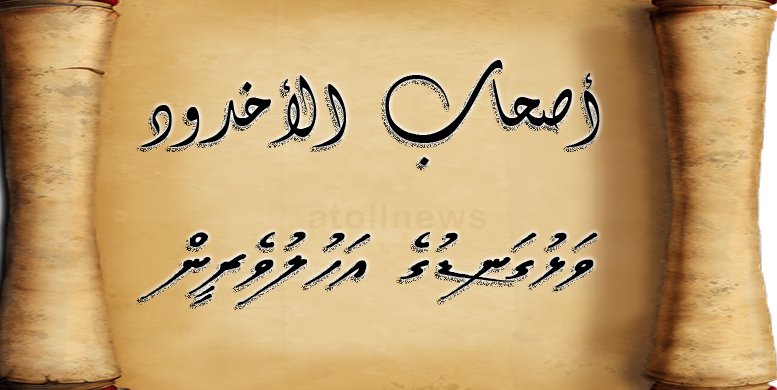 أصحاب الأخدود
atollnews
ވަޅުގަނޑުގެ އަހުލުވެރީން